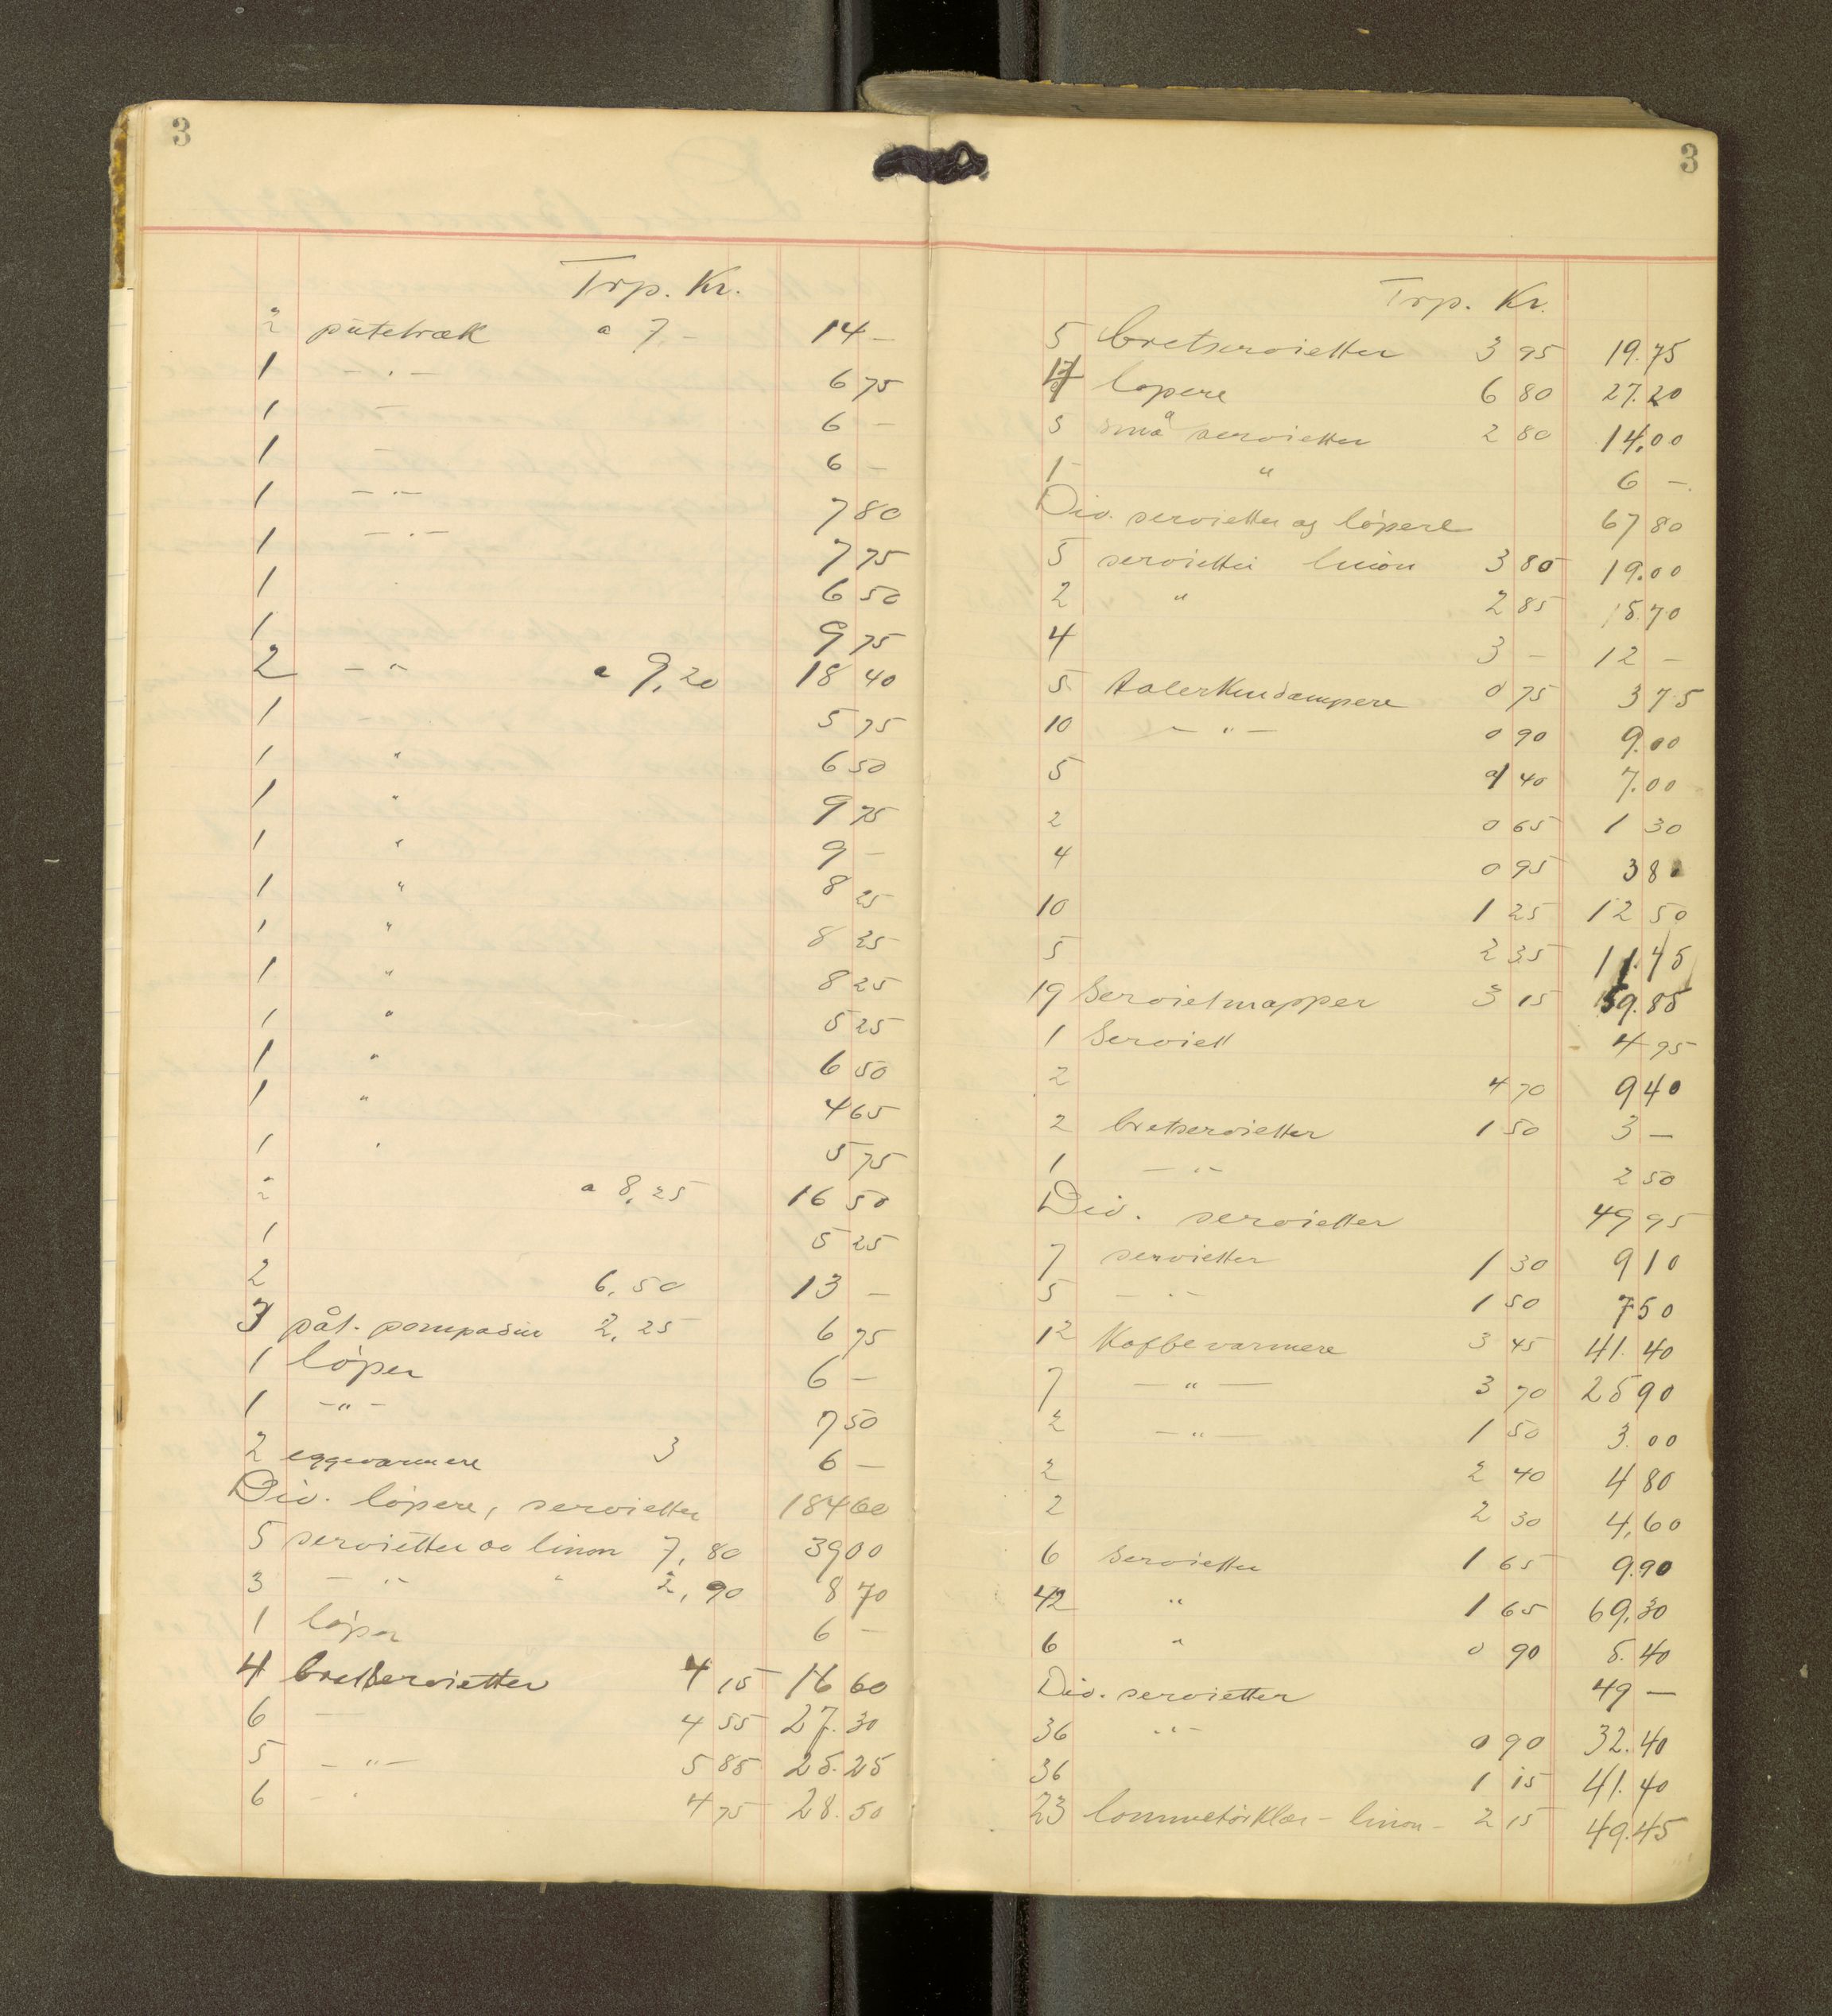 3
Trp. Kr.
2 putetræk a 7,- 14 -
1 - . - 6 75
1 - 6 -
1 - 6 -
1 - . - 7 80
1 - . - 7 75
1 6 50
1 9 75
2 - " a 9,20 18 40
1 5 75
1 " 6 50
1 " 9 75
1 " 9 -
1 " 8 25
1 " 8 25
1 " 8 25
1 " 5 25
1 " 6 50
1 " 4 65
1 " 5 75
2 a 8,25 16 50
1 5 25
2 6,50 13 -
3 påt. pompadur 2,25 6 75
1 löper 6 -
1 - " - 7 50
2 eggevarmere 3 6 -
Div. löpere, servietter 184 60
5 servietter linon 7,80 39 00
3 - " - " 2,90 8 70
1 löper 6 -
4 bretservietter 4 15 16 60
6 - 4 55 27.30
5 - " - 5 85 25.25
6 - " 4 75 28.50
3
Trp. Kr.
5 bretservietter 3 95 19.75
4 lopere 6 80 27.20
5 små servietter 2 80 14,00
1 " 6 -
Div. servietter og löpere 67 80
5 servietter linon 3 80 19.00
2 " 2 85 5.70
4 3 - 12 -
5 talerkendempere 0 75 3 75
10 - " - 0 90 9.00
5 1 40 7.00
2 0 65 1 30
4 0 95 3 80
10 1 25 12 50
5 2 35 11.75
19 Servietmapper 3 15 59.85
1 Serviett 4 95
2 4 70 9 40
2 bretservietter 1 50 3 -
1 - " - 2 50
Div. servietter 49 95
7 servietter 1 30 9 10
5 - " - 1 50 7 50
12 Kaffevarmere 3 45 41.40
7 - " - 3 70 25 90
2 - " - 1 50 3.00
2 2 40 4 80
2 2 30 4,60
6 Servietter 1 65 9.90
42 " 1 65 69,30
6 " 0 90 5.40
Div. servietter 49 -
36 - " - 0 90 32.40
36 1 15 41.40
23 lommetörklær - linon - 2 15 49.45